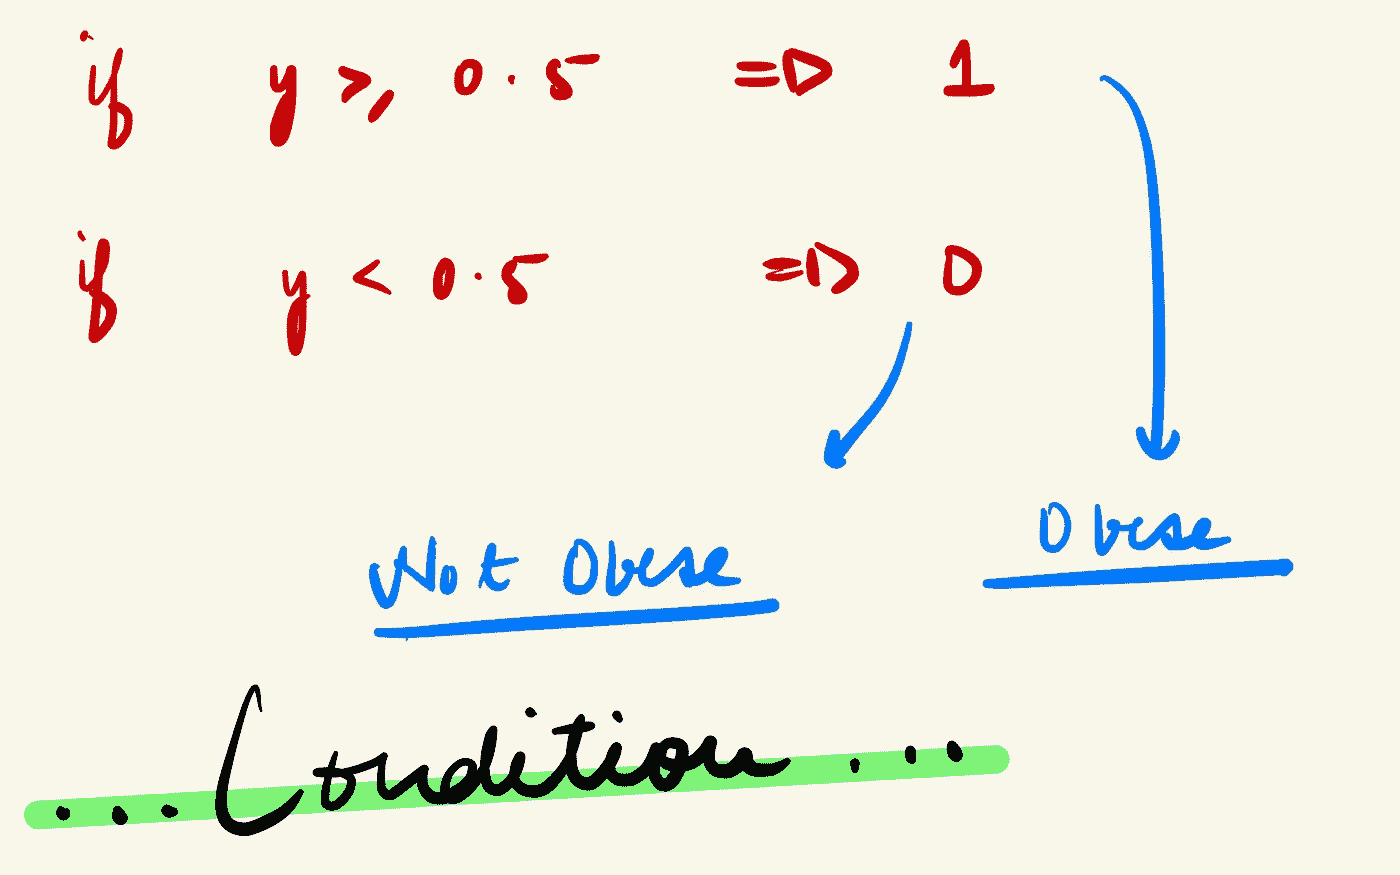 if y ≥ 0.5 => 1
if y < 0.5 => 0
Not Obese
Obese
...Condition...